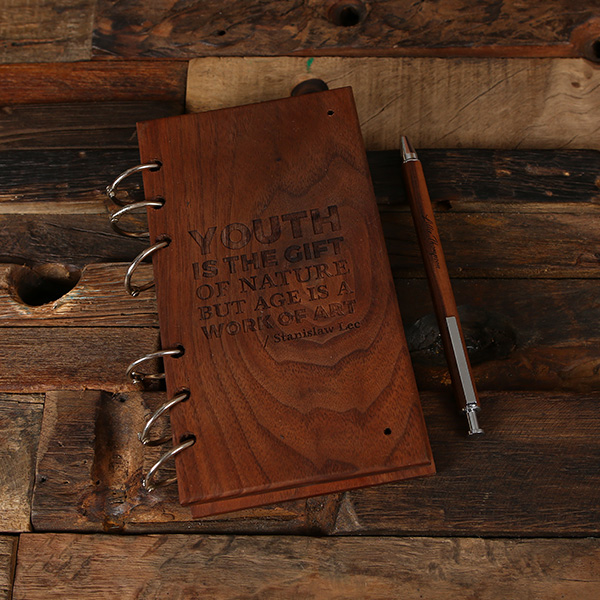 YOUTH
IS THE GIFT
OF NATURE
BUT AGE IS A
WORK OF ART
/ Stanislaw Lec